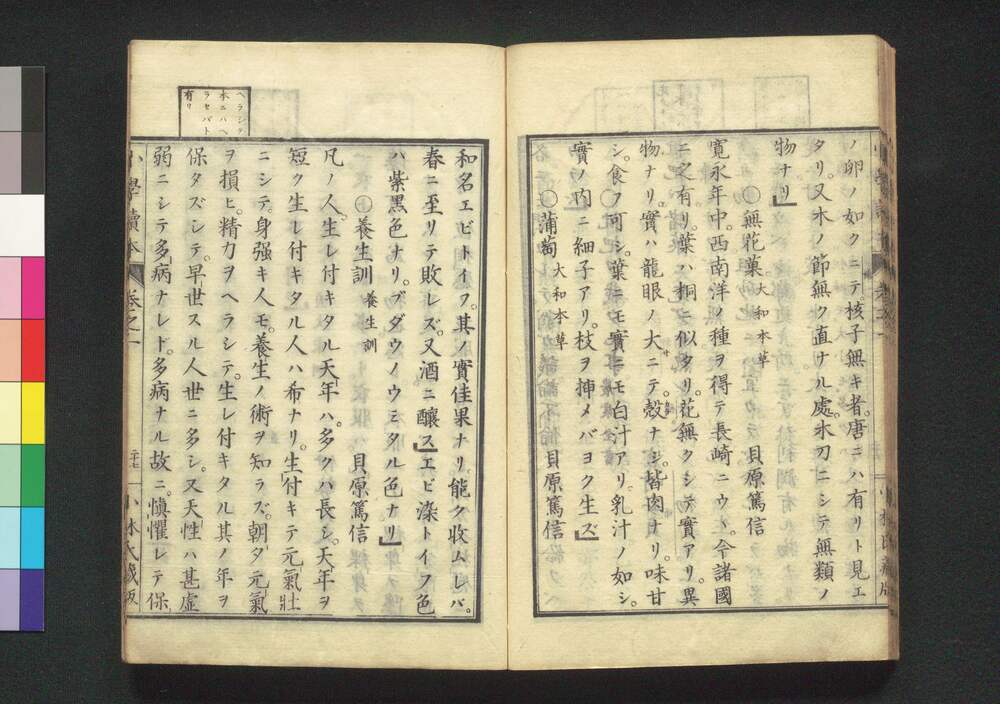 ノ卵ノ如クニテ核子無キ者。唐ニハ有リト見エ
タリ。又木ノ節無ク直ナル處。氷刀ニシテ無類ノ
物ナリ」
〇無花菓 大和本草 貝原篤信
寛永年中。西南洋ノ種ヲ得テ長崎ニウヽ。今諸國
ニ之有リ。葉ハ桐ニ似タリ。花無クシテ實アリ。異
物ナリ。實ハ龍眼ノ大ニテ。殻ナシ。皆肉ナリ。味甘
シ。食フ可シ。葉ニモ實ニモ白汁アリ。乳汁ノ如シ。
實ノ内ニ細子アリ。枝ヲ挿メバヨク生ズ」
〇蒲萄 大和本草 貝原篤信
和名エビトイフ。其ノ實佳果ナリ。能ク收ムレバ。
春ニ至リテ敗レズ。又酒ニ釀ス」エビ染トイフ色
ハ紫黒色ナリ。ブダウノウミタル色ナリ」
〇養生訓 養生訓 貝原篤信
凡ノ人。生レ付キタル天年ハ。多クハ長シ。天年ヲ
短ク生レ付キタル人ハ希ナリ。生付キテ元氣壯
ニシテ。身強キ人モ。養生ノ術ヲ知ラズ。朝タ元氣
ヲ損ヒ。精力ヲヘラシテ。生レ付キタル其ノ年ヲ
保タズシテ。早世スル人世ニ多シ。又天性ハ甚虚
弱ニシテ多病ナレド。多病ナル故ニ。愼懼レテ保
ヘラシテ
本ニハヘ
ラセバト
有リ
小學讀本 卷之一